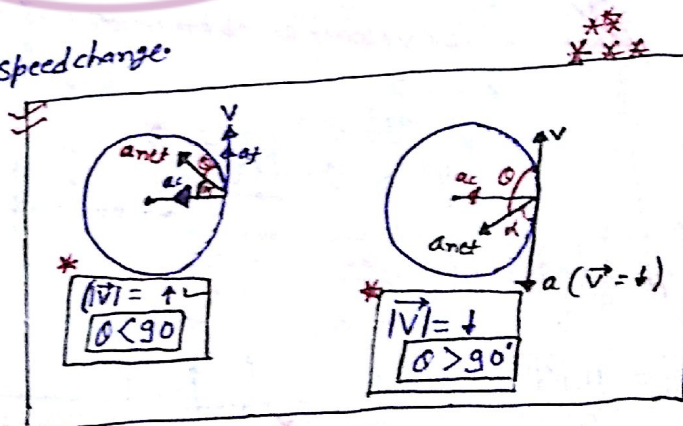 speed change.
V
at
anet
θ
ac
α
|V⃗| = ↑
θ<90
V
ac
θ
anet
α
a (V⃗ = ↓)
|V⃗| = ↓
θ>90°